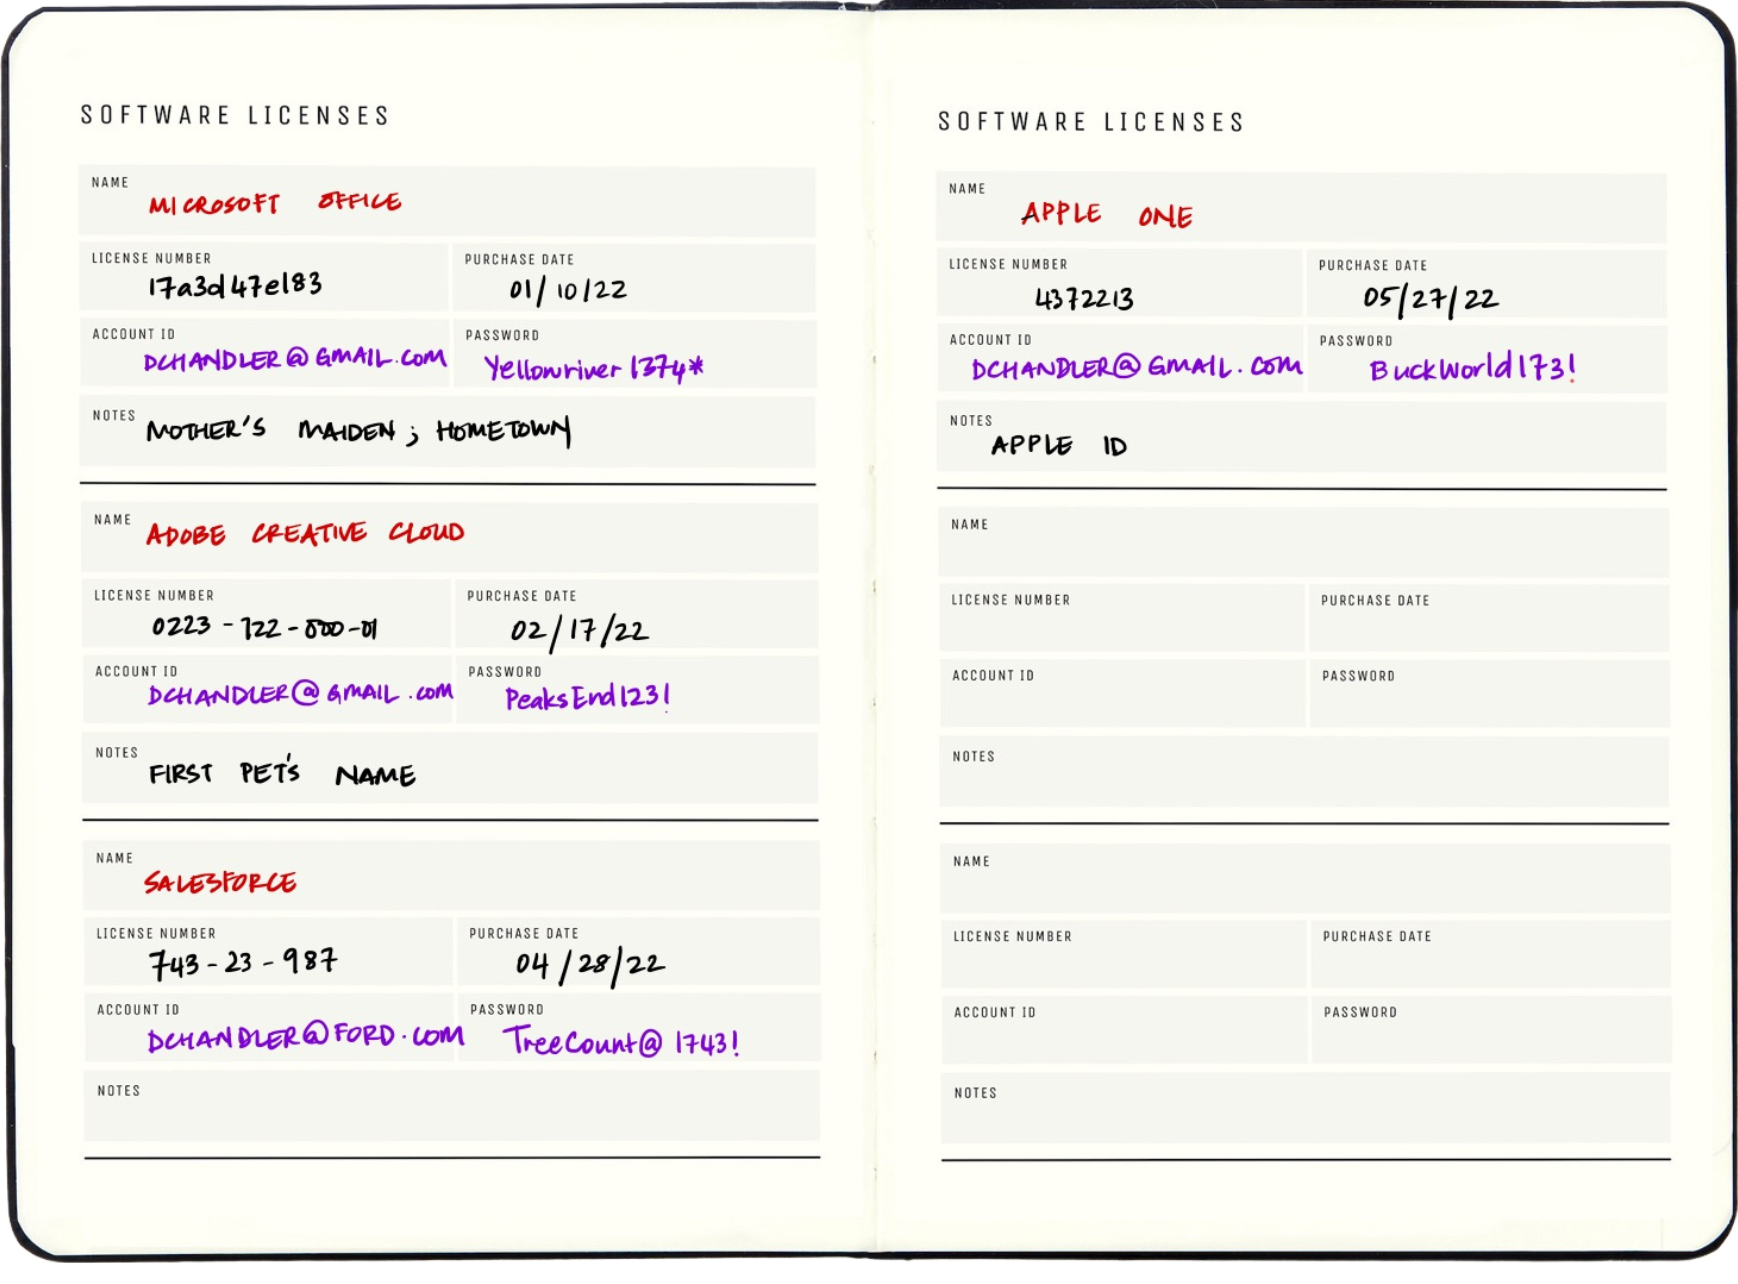 SOFTWARE LICENSES
NAME
MICROSOFT OFFICE
LICENSE NUMBER PURCHASE DATE
17a3d47e183 01/10/22
ACCOUNT ID PASSWORD
DCHANDLER@GMAIL.COM Yellowriver1374*
NOTES MOTHER'S MAIDEN ; HOMETOWN
NAME ADOBE CREATIVE CLOUD
LICENSE NUMBER PURCHASE DATE
0223 - 722 - 000 - 01 02/17/22
ACCOUNT ID PASSWORD
DCHANDLER@GMAIL.COM PeaksEnd123!
NOTES FIRST PET'S NAME
NAME
SALESFORCE
LICENSE NUMBER PURCHASE DATE
743 - 23 - 987 04/28/22
ACCOUNT ID PASSWORD
DCHANDLER@FORD.COM TreeCount@1743!
NOTES
SOFTWARE LICENSES
NAME
APPLE ONE
LICENSE NUMBER PURCHASE DATE
4372213 05/27/22
ACCOUNT ID PASSWORD
DCHANDLER@GMAIL.COM BuckWorld173!
NOTES
APPLE ID
NAME
LICENSE NUMBER PURCHASE DATE
ACCOUNT ID PASSWORD
NOTES
NAME
LICENSE NUMBER PURCHASE DATE
ACCOUNT ID PASSWORD
NOTES